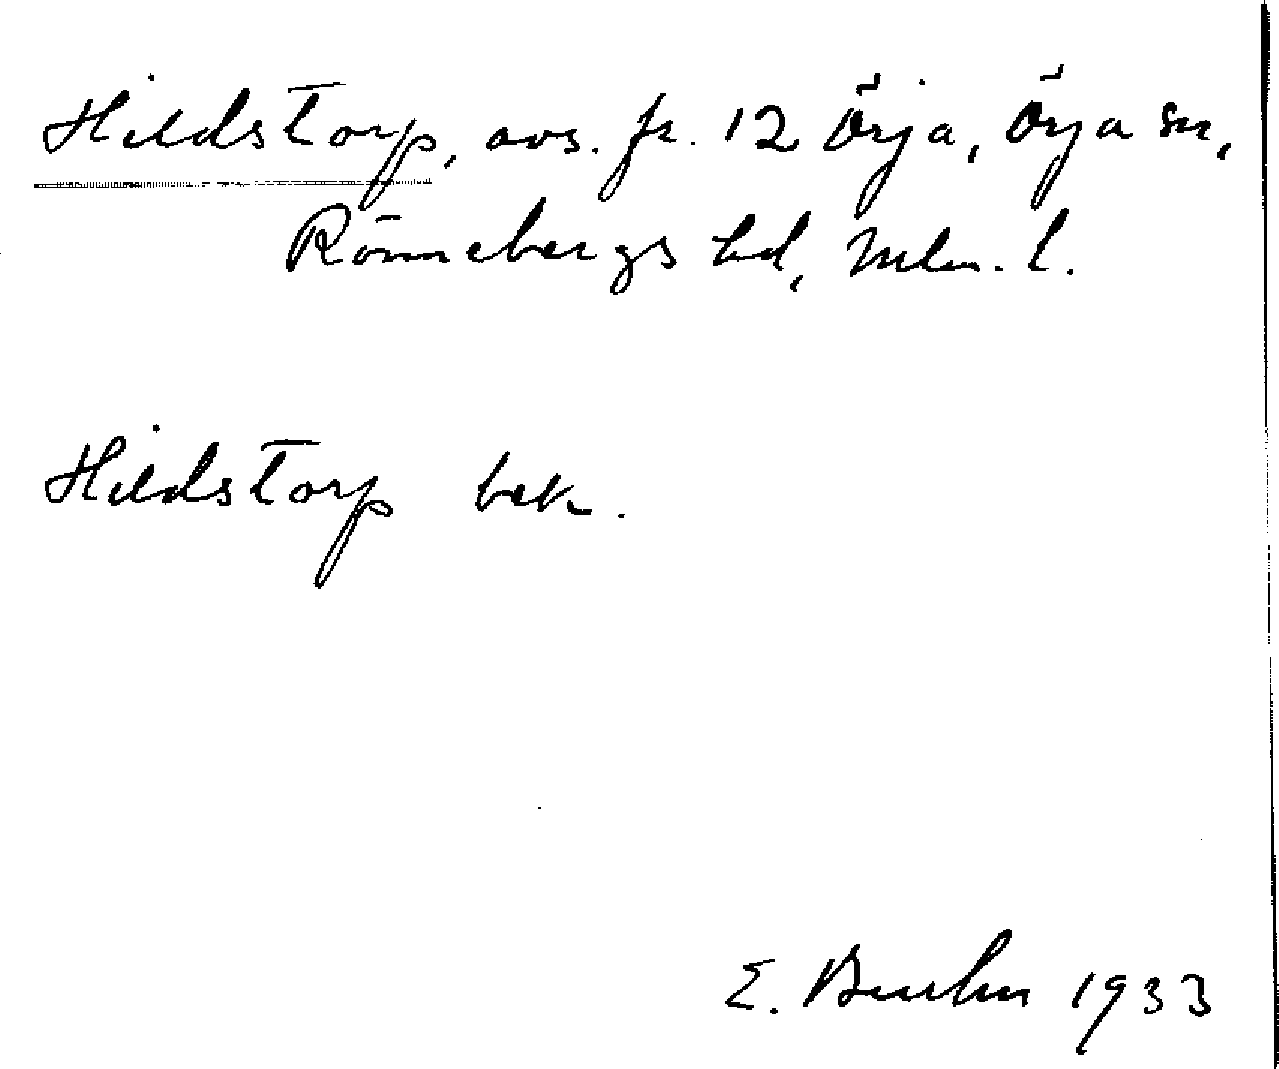 Hildstorp, avs. fr. 12 Örja, Örja sn,
Rönnebergs hd, Mlm. l.
Hildstorp bek.
E. Bruhn 1933